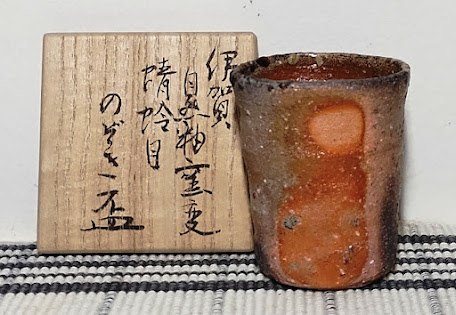 伊賀
自然釉窯変
蜻蛉目
のぞき盃